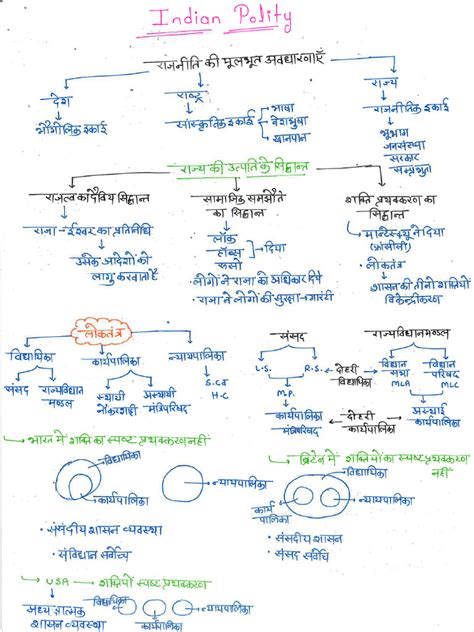 Indian Polity
राजनीति की मूलभूत अवधारणाएँ
देश राष्ट्र राज्य
भौगोलिक इकाई सांस्कृतिक इकाई राजनीतिक इकाई
भाषा
वेशभूषा
खानपान
भूभाग
जनसंख्या
सरकार
सम्प्रभुता
राज्य की उत्पति के सिद्धान्त
राजत्व का दैविय सिद्धान्त
राजा - ईश्वर का प्रतिनिधि
उसके आदेशों को
लागु करवाता है
सामाजिक समझौते
का सिद्धान्त
लॉक
हॉब्स
रूसो
दिया
लोगों ने राजा को अधिकार दिये
राजा ने लोगों की सुरक्षा गारंटी
शक्ति प्रथक्करण का
सिद्धान्त
मान्टेस्क्यू ने दिया
(फ्रांसीसी)
लोकतंत्र
शासन की तीनों शक्तियों
विकेन्द्रीकरण
लोकतंत्र
विधायिका कार्यपालिका न्यायपालिका
संसद राज्यविधान
मण्डल
स्थायी
नौकरशाही
अस्थायी
मंत्रिपरिषद
S.C.
H.C
संसद
L.S. R.S.
दोहरी
विधायिका
M.P.
कार्यपालिका
मंत्रिपरिषद
दोहरी
कार्यपालिका
राज्यविधानमण्डल
विधान
सभा
MLA
विधान
परिषद
MLC
अस्थाई
कार्यपालिका
भारत में शक्ति का स्पष्ट प्रथक्करण नहीं
विधायिका
कार्यपालिका
न्यायपालिका
• संसदीय शासन व्यवस्था
• संविधान सर्वोच्च
ब्रिटेन में शक्तियों का स्पष्ट प्रथक्करण
नहीं
विधायिका
कार्य
पालिका
न्यायपालिका
• संसदीय शासन
• संसद सर्वोच्च
USA शक्तियों स्पष्ट प्रथक्करण
अध्यक्षात्मक
शासन व्यवस्था
विधायिका
कार्यपालिका
न्यायपालिका